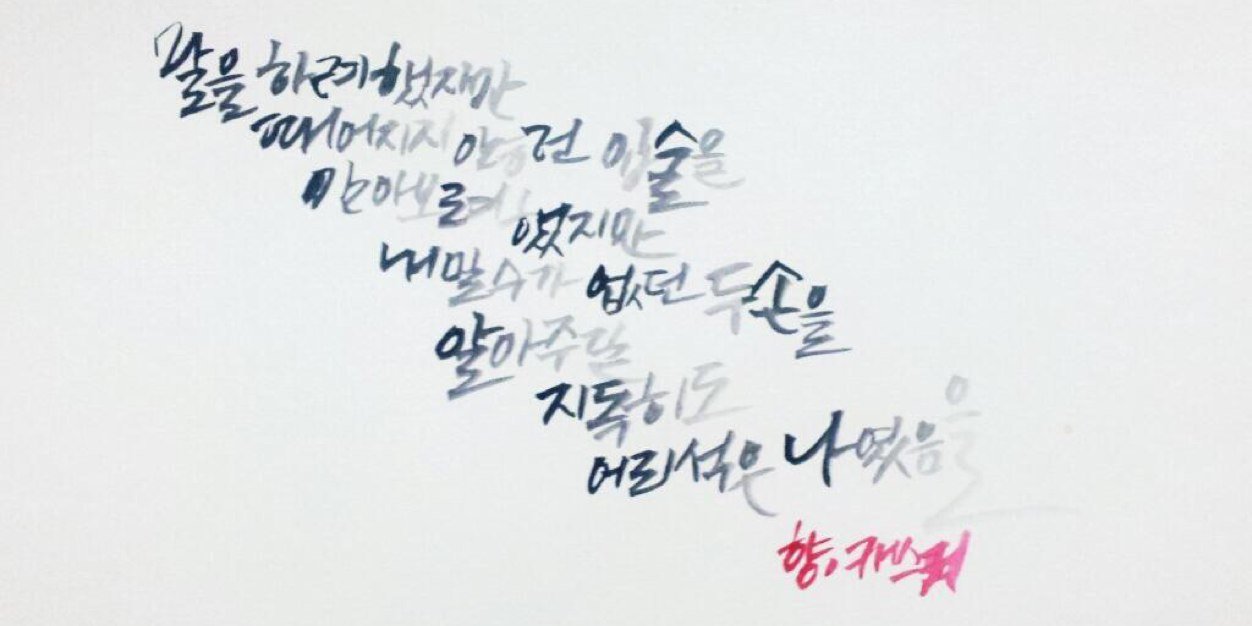 말을 하려 했지만
떼어지지 않던 입술을
안아보려
했지만
내밀 수가 없던 두 손을
알아주길
지독히도
어리석은 나였음을
향.캐스퀴